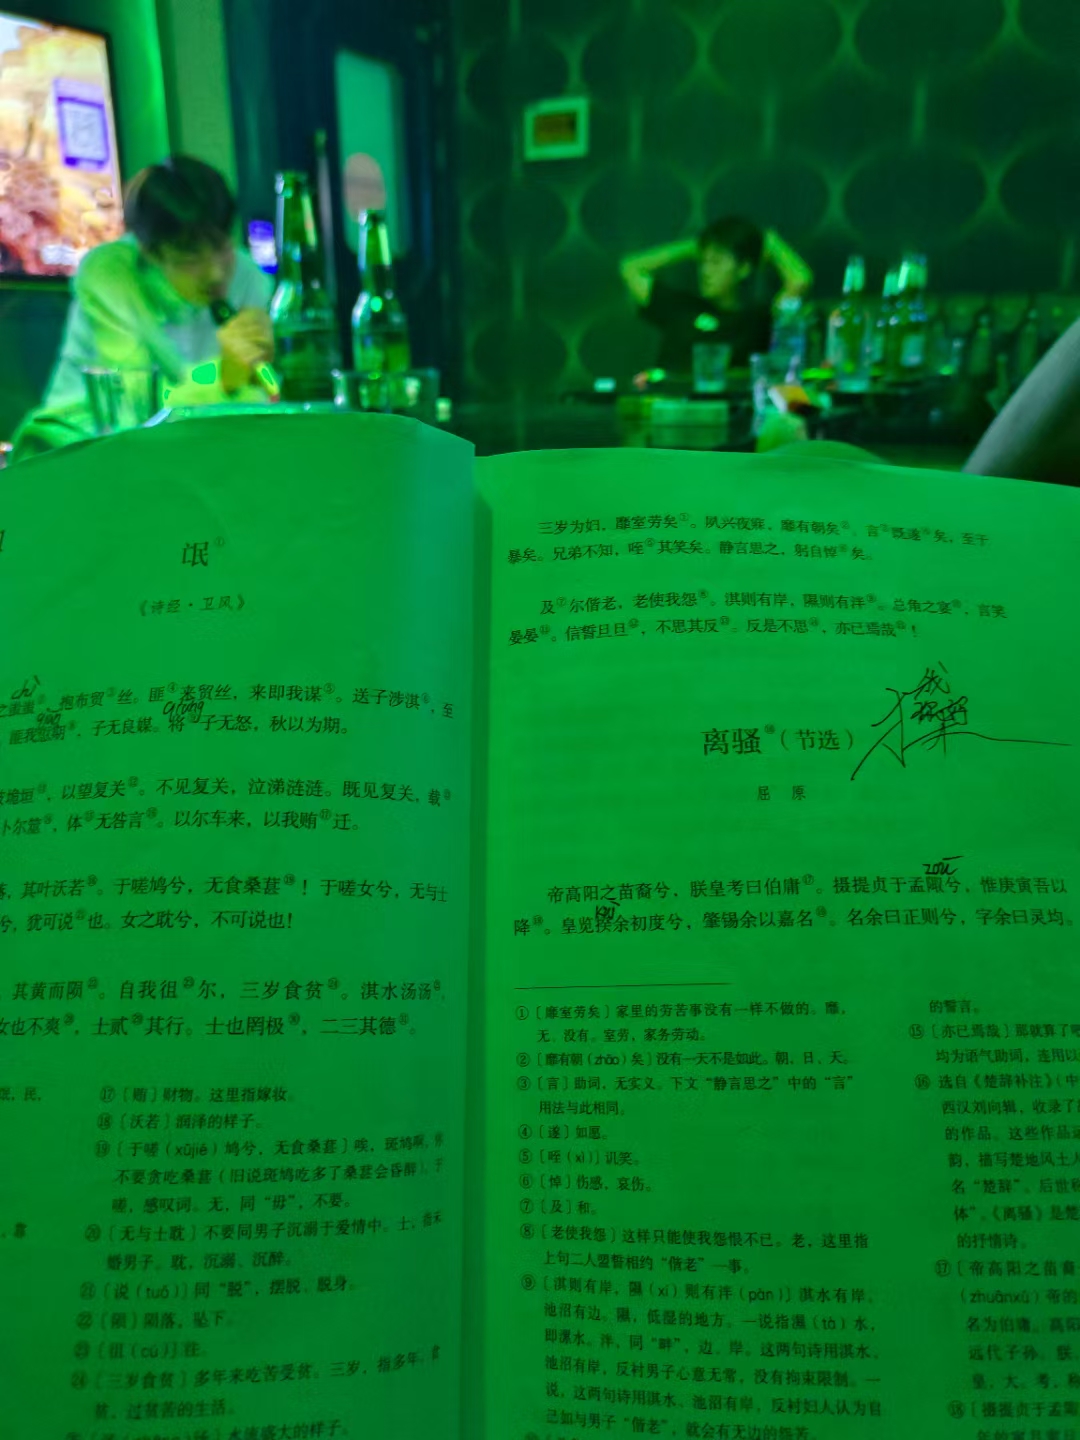 氓①
《诗经·卫风》
chī
之蚩蚩，抱布贸③丝。匪④来贸丝，来即我谋⑤。送子涉淇⑥，至
qiān
qiāng
，匪我愆期⑧，子无良媒。将⑨子无怒，秋以为期。
彼垝垣⑪，以望复关⑫。不见复关，泣涕涟涟。既见复关，载⑬
卜尔筮⑭，体⑮无咎言⑯。以尔车来，以我贿⑰迁。
落，其叶沃若⑱。于嗟鸠兮，无食桑葚⑲！于嗟女兮，无与士
兮，犹可说㉑也。女之耽兮，不可说也！
，其黄而陨㉒。自我徂㉓尔，三岁食贫㉔。淇水汤汤㉕，
女也不爽㉘，士贰㉙其行。士也罔极㉚，二三其德㉛。
⑰〔贿〕财物。这里指嫁妆。
⑱〔沃若〕润泽的样子。
⑲〔于嗟（xūjiē）鸠兮，无食桑葚〕唉，斑鸠啊，
不要贪吃桑葚（旧说斑鸠吃多了桑葚会昏醉）。于
嗟，感叹词。无，同“毋”，不要。
⑳〔无与士耽〕不要同男子沉溺于爱情中。士，指未
婚男子。耽，沉溺、沉醉。
㉑〔说（tuō）〕同“脱”，摆脱、脱身。
㉒〔陨〕陨落，坠下。
㉓〔徂（cú）〕往。
㉔〔三岁食贫〕多年来吃苦受贫。三岁，指多年。食
贫，过贫苦的生活。
水流盛大的样子。
三岁为妇，靡室劳矣①。夙兴夜寐，靡有朝矣②。言③既遂④矣，至于
暴矣。兄弟不知，咥⑤其笑矣。静言思之，躬自悼⑥矣。
及⑦尔偕老，老使我怨⑧。淇则有岸，隰则有泮⑨。总角之宴⑩，言笑
晏晏⑪。信誓旦旦⑫，不思其反⑬。反是不思⑭，亦已焉哉⑮！
离骚⑯（节选）
屈 原
zōu
帝高阳之苗裔兮，朕皇考曰伯庸⑰。摄提贞于孟陬兮，惟庚寅吾以
kuí
降⑱。皇览揆余初度兮，肇锡余以嘉名⑲。名余曰正则兮，字余曰灵均。
①〔靡室劳矣〕家里的劳苦事没有一样不做的。靡，
无、没有。室劳，家务劳动。
②〔靡有朝（zhāo）矣〕没有一天不是如此。朝，日、天。
③〔言〕助词，无实义。下文“静言思之”中的“言”
用法与此相同。
④〔遂〕如愿。
⑤〔咥（xì）〕讥笑。
⑥〔悼〕伤感，哀伤。
⑦〔及〕和。
⑧〔老使我怨〕这样只能使我怨恨不已。老，这里指
上句二人盟誓相约“偕老”一事。
⑨〔淇则有岸，隰（xí）则有泮（pàn）〕淇水有岸，
池沼有边。隰，低湿的地方。一说指漯（tà）水，
即漯水。泮，同“畔”，边、岸。这两句诗用淇水、
池沼有岸，反衬男子心意无常，没有拘束限制。一
说，这两句诗用淇水、池沼有岸，反衬妇人认为自
己如与男子“偕老”，就会有无边的怨苦。
的誓言。
⑮〔亦已焉哉〕那就算了吧
均为语气助词，连用以
⑯ 选自《楚辞补注》（中
西汉刘向辑，收录了
的作品。这些作品运
韵，描写楚地风土人
名“楚辞”。后世称
体”。《离骚》是楚
的抒情诗。
⑰〔帝高阳之苗裔
（zhuānxū）帝的
名为伯庸。高阳
远代子孙。朕，
皇，大。考，称
⑱〔摄提贞于孟陬